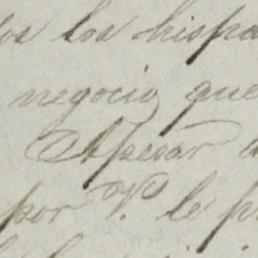 los hispa
negocio, que
Apesar
por V. le